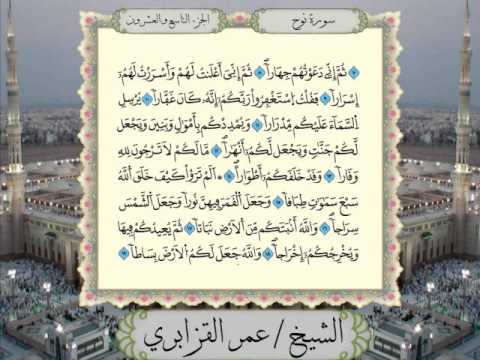 سورة نوح
الجزء التاسع والعشرون
ثُمَّ إِنِّى دَعَوْتُهُمْ جِهَاراً ثُمَّ إِنِّىَ أَعْلَنتُ لَهُمْ وَأَسْرَرْتُ لَهُمُۥ
إِسْرَاراً فَقُلْتُ اُ۪سْتَغْفِرُواْ رَبَّكُمُۥ إِنَّهُۥ كَانَ غَفَّاراً يُرْسِلِ
اِ۬لسَّمَآءَ عَلَيْكُم مِّدْرَاراً وَيُمْدِدْكُم بِأَمْوَٰلٍ وَبَنِينَ وَيَجْعَل
لَّكُمْ جَنَّٰتٍ وَيَجْعَل لَّكُمُۥ أَنْهَٰراً مَّا لَكُمْ لاَ تَرْجُونَ لِلهِ
وَقَاراً وَقَدْ خَلَقَكُمُۥ أَطْوَاراً اَلَمْ تَرَوْاْ كَيْفَ خَلَقَ اَ۬للَّهُ
سَبْعَ سَمَٰوَٰتٍ طِبَاقاً وَجَعَلَ اَ۬لْقَمَرَ فِيهِنَّ نُوراً وَجَعَلَ اَ۬لشَّمْسَ
سِرَاجاً وَاللَّهُ أَنۢبَتَكُم مِّنَ اَ۬لْأَرْضِ نَبَاتاً ثُمَّ يُعِيدُكُمْ فِيهَا
وَيُخْرِجُكُمُۥ إِخْرَاجاً وَاللَّهُ جَعَلَ لَكُمُ اُ۬لْأَرْضَ بِسَاطاً
الشيخ / عمر القزابري